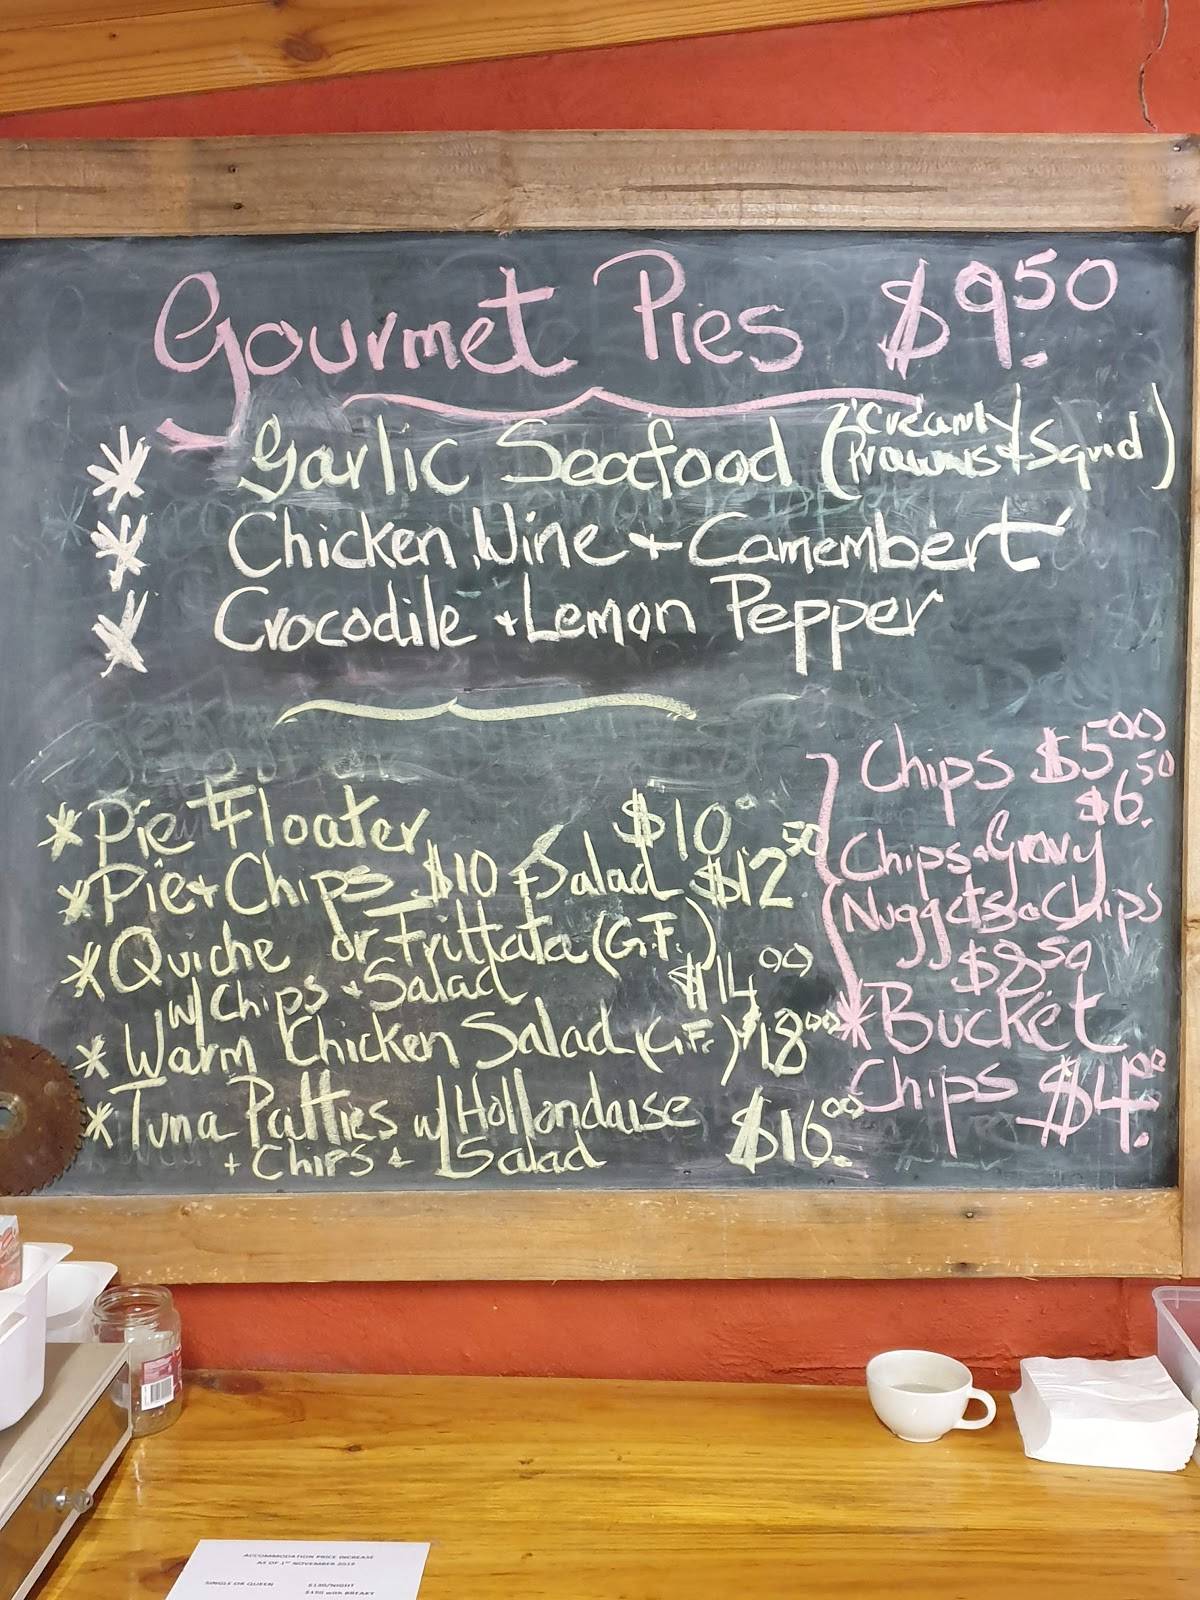 Gourmet Pies $9.50
* Garlic Seafood (Creamy Prawns + Squid)
* Chicken, Wine + Camembert
* Crocodile + Lemon Pepper
* Pie Floater $10
* Pie + Chips $10 + Salad $12.50
* Quiche or Frittata (G.F.)
w/ Chips + Salad $14.00
* Warm Chicken Salad (G.F.) $18.00
* Tuna Patties w/ Hollondaise
+ Chips + Salad $16.00
Chips $5.00
$6.50
Chips + Gravy
Nuggets & Chips
$8.50
* Bucket
Chips $4.00
ACCOMMODATION PRICE INCREASE
AS OF 1ST NOVEMBER 2019
SINGLE OR QUEEN
with BREAKY